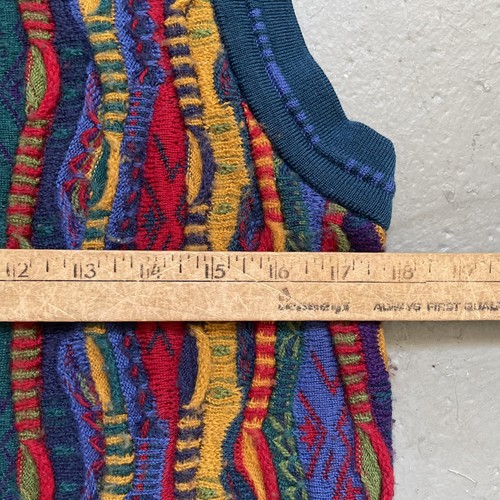 12 13 14 15 16 17 18 19
ALWAYS FIRST QUAL